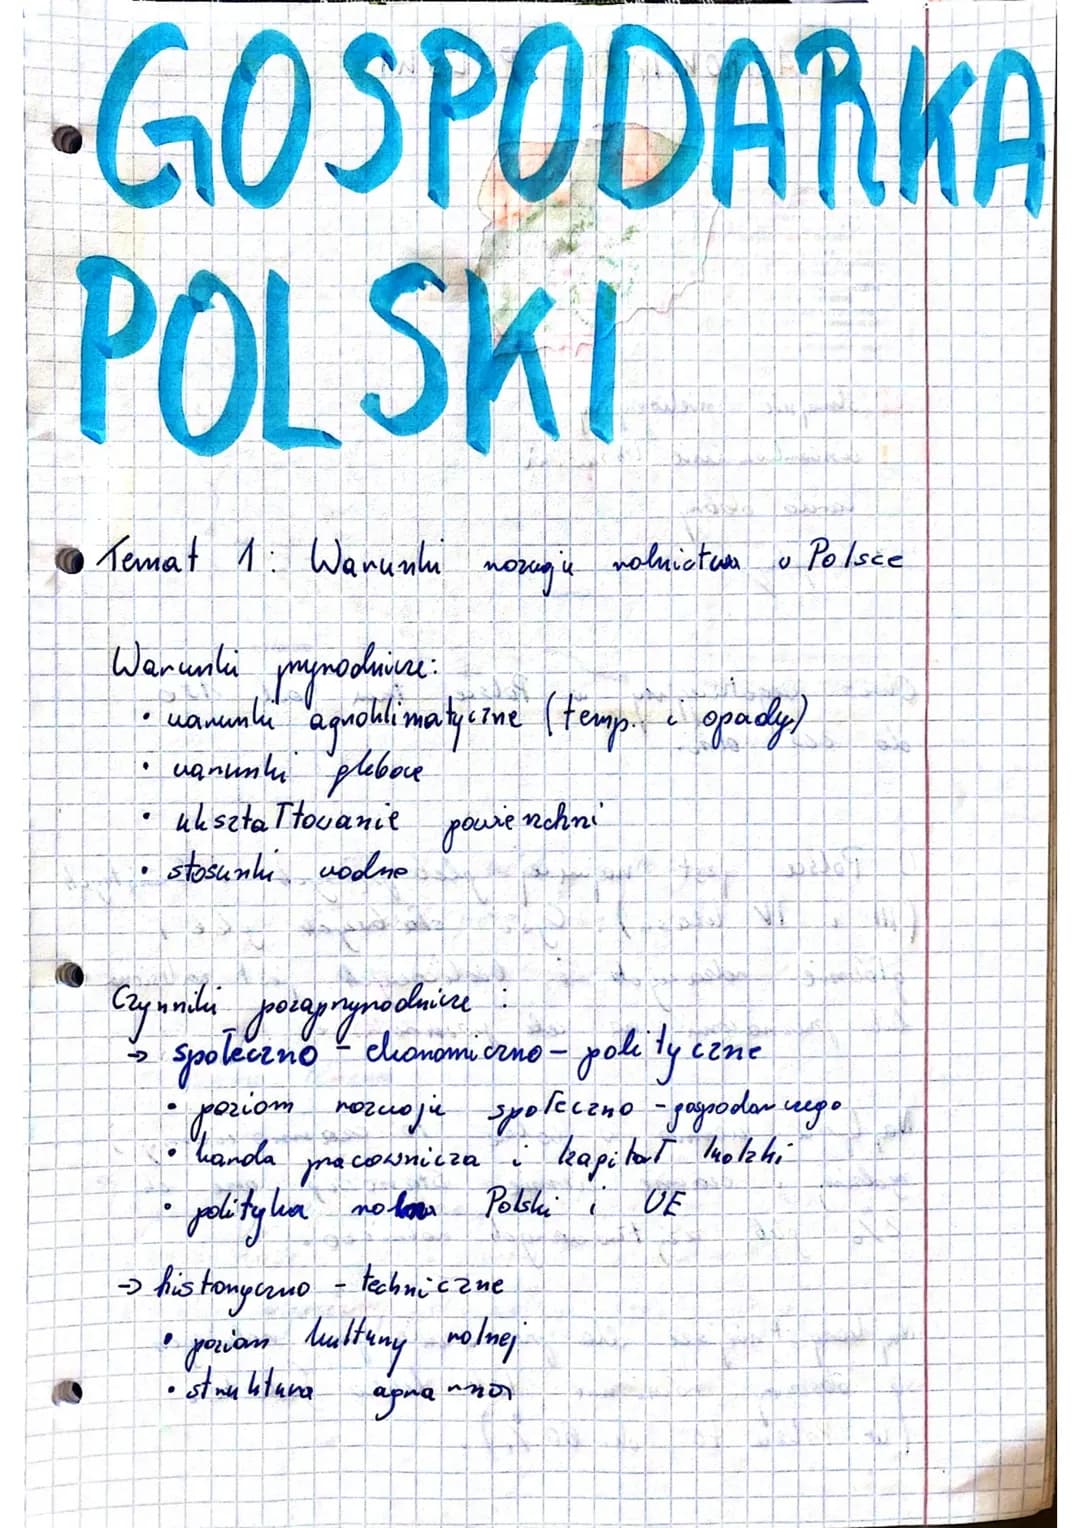 GOSPODARKA
POLSKI
Temat 1: Warunki rozwoju rolnictwa w Polsce
Warunki przyrodnicze:
• warunki agroklimatyczne (temp. i opady)
• warunki glebowe
• ukształtowanie powierzchni
• stosunki wodne
Czynniki pozaprzyrodnicze:
→ społeczno - ekonomiczno - polityczne
• poziom rozwoju społeczno - gospodarczego
• kadra pracownicza i kapitał ludzki
• polityka rolna Polski i UE
→ historyczno - techniczne
• poziom kultury rolnej
• struktura agrarna